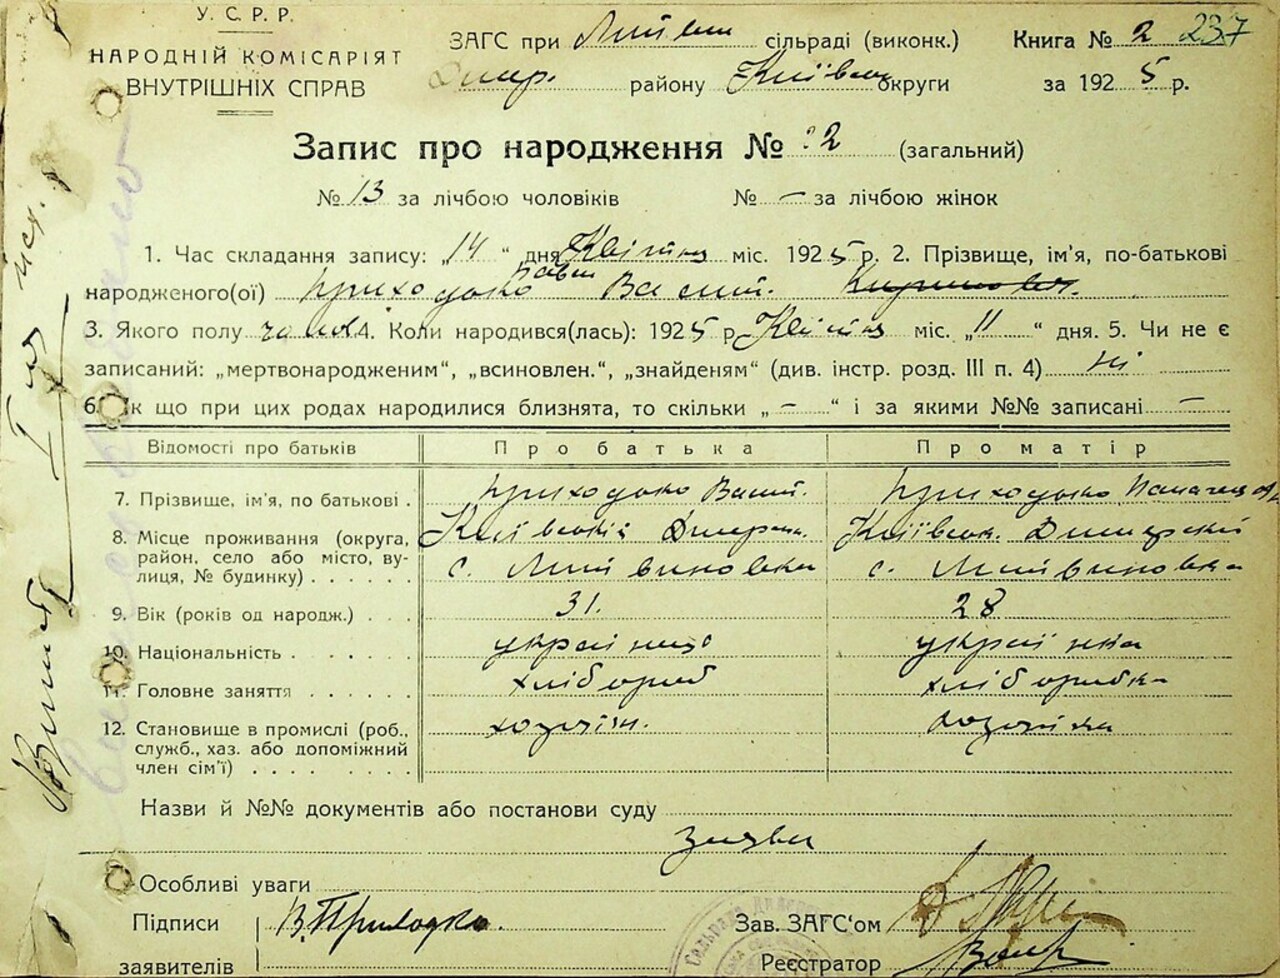 У. С. Р. Р.
НАРОДНІЙ КОМІСАРІЯТ
ВНУТРІШНІХ СПРАВ
ЗАГС при сільраді (виконк.) Книга № 2 237
Димер. району Київськ округи за 1925 р.
Запис про народження № 2 (загальний)
№ 13 за лічбою чоловіків № — за лічбою жінок
1. Час складання запису: „14 “ дня Квітня міс. 1925 р. 2. Прізвище, ім'я, по-батькові
народженого(ої) Приходько Павл Васил.
3. Якого полу чолов. 4. Коли народився(лась): 1925 р Квітня міс. „11 “ дня. 5. Чи не є
записаний: „мертвонародженим“, „всиновлен.“, „знайденям“ (див. інстр. розд. III п. 4) ні
6. Як що при цих родах народилися близнята, то скільки „ – “ і за якими №№ записані —
Відомості про батьків Про батька Про матір
7. Прізвище, ім'я, по батькові . Приходько Васил. Приходько
8. Місце проживання (округа, район, село або місто, вулиця, № будинку) . . . . . Київський Димерськ. с. Литвиновка Київськ. Димерский с. Литвиновка
9. Вік (років од народж.) . . . 31. 28
10. Національність . . . . . українец українка
11. Головне заняття . . . . . . хлібороб хліборобка
12. Становище в промислі (роб., служб., хаз. або допоміжний член сім'ї) . . . . . . . . хозяїн. хозяйка
Назви й №№ документів або постанови суду
Заява
Особливі уваги
Підписи В. Приходько. Зав. ЗАГС'ом
заявителів Реєстратор